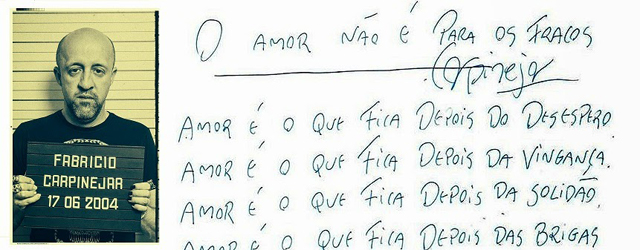 FABRICIO
CARPINEJAR
17 06 2004
O AMOR NÃO É PARA OS FRACOS
Carpinejar
AMOR É O QUE FICA DEPOIS DO DESESPERO.
AMOR É O QUE FICA DEPOIS DA VINGANÇA.
AMOR É O QUE FICA DEPOIS DA SOLIDÃO.
AMOR É O QUE FICA DEPOIS DAS BRIGAS